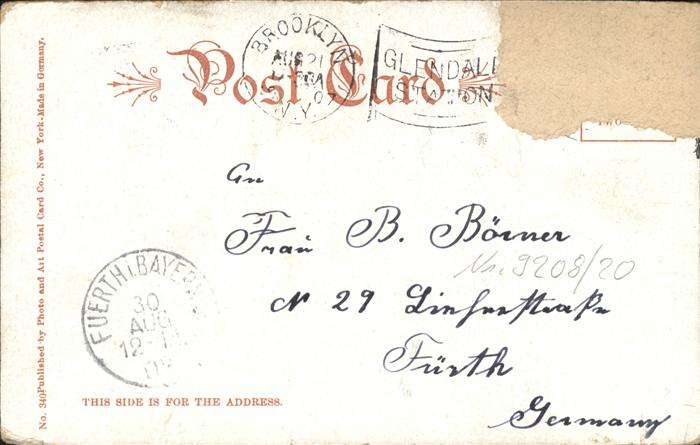 Post Card
BROOKLYN
AUG 21
07
N.Y.
GLENDAL
STATION
An
Frau B. Börner
Nr. 9208/20
N 29
Fürth
Germany
FUERTH i. BAYE
30
AUG
12-
THIS SIDE IS FOR THE ADDRESS.
No. 340 Published by Photo and Art Postal Card Co., New York. Made in Germany.